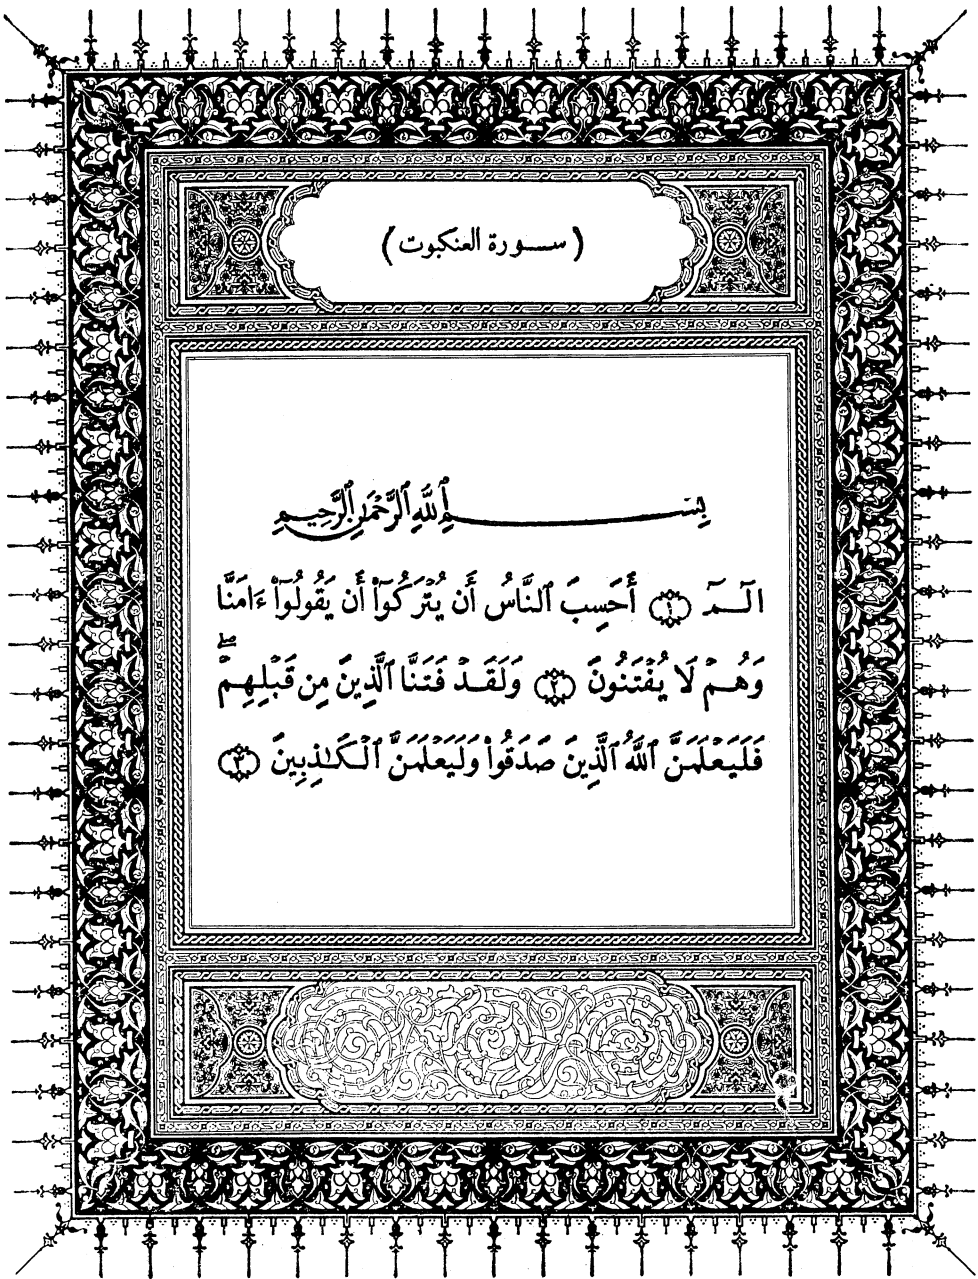 (سورة العنكبوت)
بِسْمِ ٱللَّهِ ٱلرَّحْمَٰنِ ٱلرَّحِيمِ
الٓمٓ ١ أَحَسِبَ ٱلنَّاسُ أَن يُتْرَكُوٓا۟ أَن يَقُولُوٓا۟ ءَامَنَّا
وَهُمْ لَا يُفْتَنُونَ ٢ وَلَقَدْ فَتَنَّا ٱلَّذِينَ مِن قَبْلِهِمْ ۖ
فَلَيَعْلَمَنَّ ٱللَّهُ ٱلَّذِينَ صَدَقُوا۟ وَلَيَعْلَمَنَّ ٱلْكَٰذِبِينَ ٣